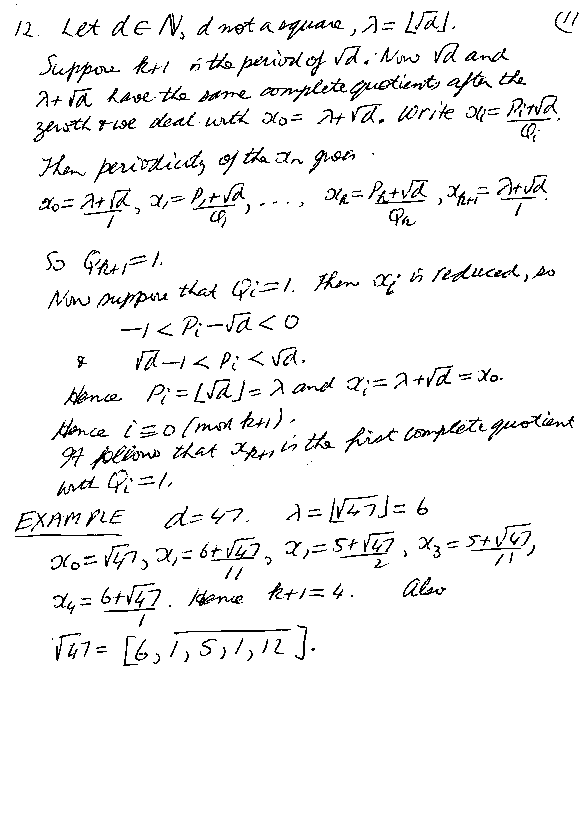 12. Let d ∈ ℕ, d not a square, λ = ⌊√d⌋. (11
Suppose k+1 is the period of √d. Now √d and
λ+√d have the same complete quotients after the
zeroth & we deal with x₀ = λ+√d. Write xᵢ = (Pᵢ+√d)/Qᵢ
Then periodicity of the xₙ gives
x₀ = (λ+√d)/1, x₁ = (P₁+√d)/Q₁, ..., xₖ = (Pₖ+√d)/Qₖ, xₖ₊₁ = (λ+√d)/1.
So Qₖ₊₁ = 1.
Now suppose that Qᵢ = 1. Then xᵢ is reduced, so
−1 < Pᵢ − √d < 0
& √d − 1 < Pᵢ < √d.
Hence Pᵢ = ⌊√d⌋ = λ and xᵢ = λ+√d = x₀.
Hence i ≡ 0 (mod k+1).
It follows that xₖ₊₁ is the first complete quotient
with Qᵢ = 1.
EXAMPLE d = 47. λ = ⌊√47⌋ = 6
x₀ = √47, x₁ = (6+√47)/11, x₁ = (5+√47)/2, x₃ = (5+√47)/11,
x₄ = (6+√47)/1. Hence k+1 = 4. Also
√47 = [6, 1, 5, 1, 12].